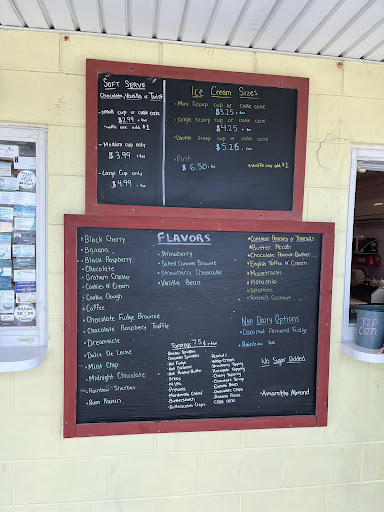 Soft Serve
Chocolate, Vanilla or Twist
-Small cup or cake cone
$2.99 + tax
-Waffle cone add $1
-Medium cup only
$3.99 + tax
-Large cup only
$4.99 + tax
Ice Cream Sizes
-Mini Scoop cup or cake cone
$3.25 + tax
-Single scoop cup or cake cone
$4.25 + tax
-Double scoop cup or cake cone
$5.25 + tax
-Pint
$6.50 + tax
*Waffle cone add $1
Flavors
-Black Cherry
-Banana
-Black Raspberry
-Chocolate
-Graham Cracker
-Cookies N' Cream
-Cookie Dough
-Coffee
-Chocolate Fudge Brownie
-Chocolate Raspberry Truffle
-Dreamsicle
-Dulce De Leche
-Mint Chip
-Midnight Chocolate
-Rainbow Sherbet
-Rum Raisin
-Strawberry
-Salted Caramel Brownie
-Strawberry Cheesecake
-Vanilla Bean
*Contains Peanuts or Treenuts
*Butter Pecan
*Chocolate Peanut Butter
*English Toffee N' Cream
*Moosetracks
*Pistachio
*Spumoni
*Toasted Coconut
Non Dairy Options
*Coconut Almond Fudge
-Rainbow Ice
No Sugar Added
-Amaretto Almond
Toppings 75¢ + tax
-Rainbow Sprinkles
-Chocolate Sprinkles
-Hot Fudge
-Hot Caramel
-Hot Peanut Butter
-Oreos
-M&Ms
-Marshmallow Creme
-Butterscotch
-Butterscotch Chips
-Peanuts
-Whip Cream
-Strawberry Topping
-Pineapple Topping
-Cherry Topping
-Chocolate Syrup
-Chocolate Chips
-Cake Cone
TIP